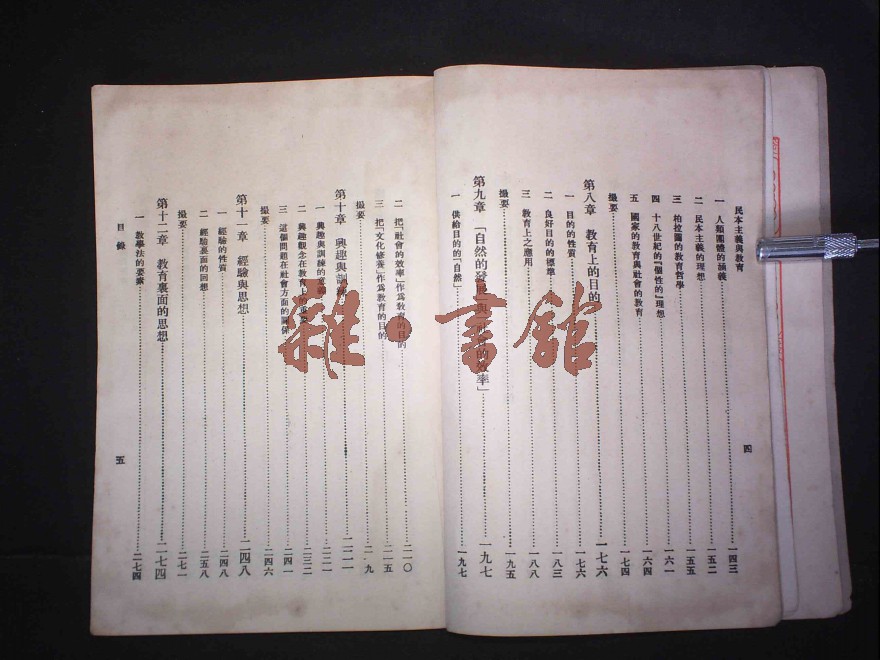 民本主義與教育
四
一 人類團體的涵義 一四三
二 民本主義的理想 一五二
三 柏拉圖的教育哲學 一五五
四 十八世紀的「個性的」理想 一六一
五 國家的教育與社會的教育 一六四
撮要 一七四
第八章 教育上的目的 一七六
一 目的的性質 一七六
二 良好目的的標準 一八三
三 教育上之應用 一八八
撮要 一九五
第九章 「自然的發展」與「社會的效率」 一九七
一 供給目的的「自然」 一九七
二 把「社會的效率」作為教育的目的 二一〇
三 把「文化修養」作為教育的目的 二一五
撮要 二一九
第十章 興趣與訓練 二二一
一 興趣與訓練的意義 二二一
二 興趣觀念在教育上的重要 二三二
三 這個問題在社會方面的關係 二四一
撮要 二四六
第十一章 經驗與思想 二四八
一 經驗的性質 二四八
二 經驗裏面的回想 二五八
撮要 二七一
第十二章 教育裏面的思想 二七四
一 教學法的要素 二七四
目錄
五
雜·書館